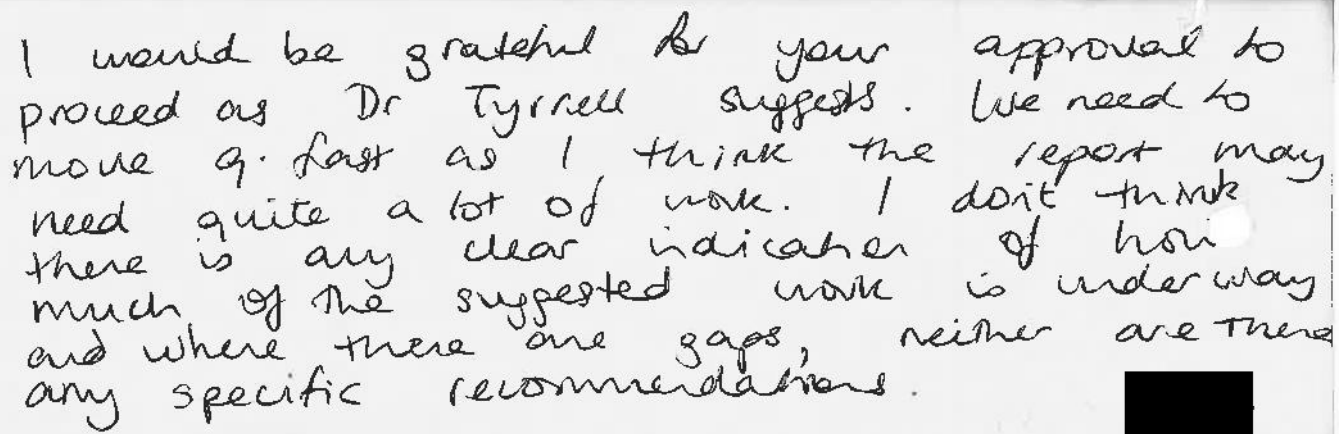 I would be grateful for your approval to
proceed as Dr Tyrrell suggests. We need to
move q. fast as I think the report may
need quite a lot of work. I don't think
there is any clear indication of how
much of the suggested work is under way
and where there are gaps, neither are there
any specific recommendations.